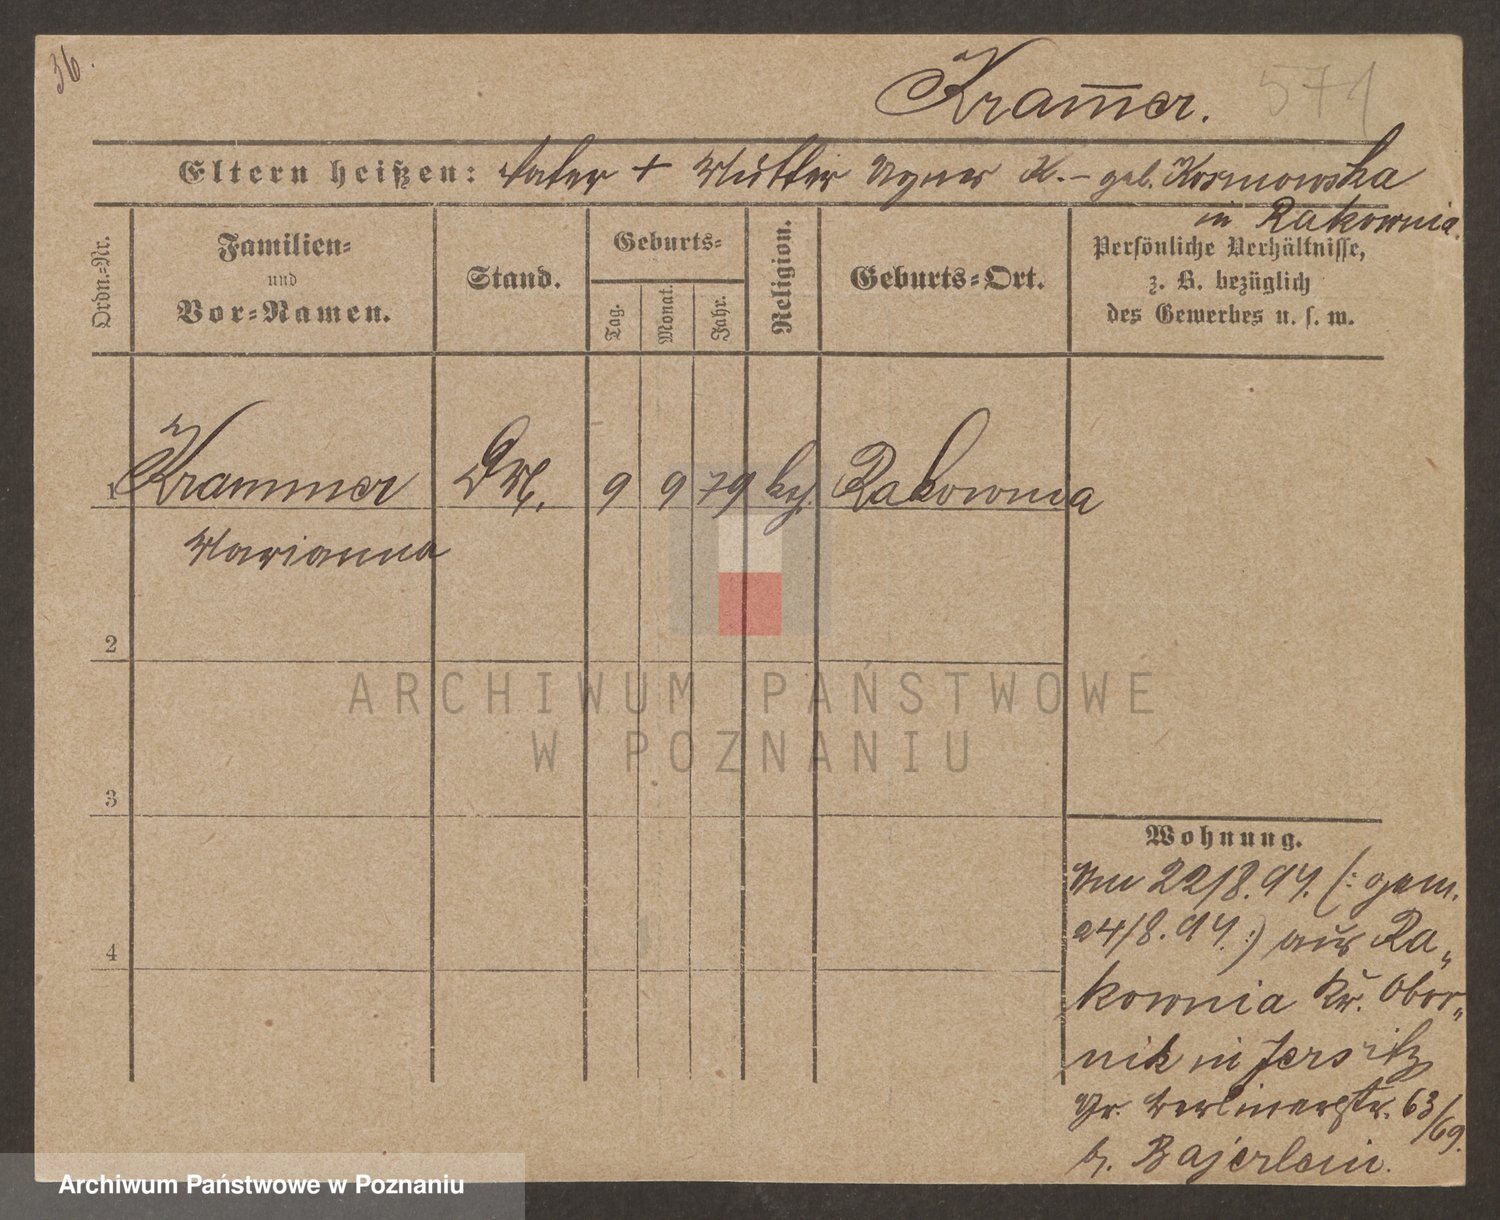 36.
Kram̅er. 571
Eltern heißen: Vater + Mutter Agnes K. – geb. Kosmowska
in Rakownia.
Ordn.-Nr.
Familien-
und
Vor-Namen.
Stand.
Geburts-
Tag.
Monat.
Jahr.
Religion.
Geburts-Ort.
Persönliche Verhältnisse,
z. B. bezüglich
des Gewerbes u. s. w.
1 Krammer 9 9 79 Rakownia
Marianna
2
ARCHIWUM PAŃSTWOWE
W POZNANIU
3
Wohnung.
Am 22/8.94. (: gem.
24/8.94 :) aus Ra„
4
kownia Kr. Obor„
nik in Jersitz
Gr. Berlinerstr. 63/69.
b. Bajerlein.
Archiwum Państwowe w Poznaniu